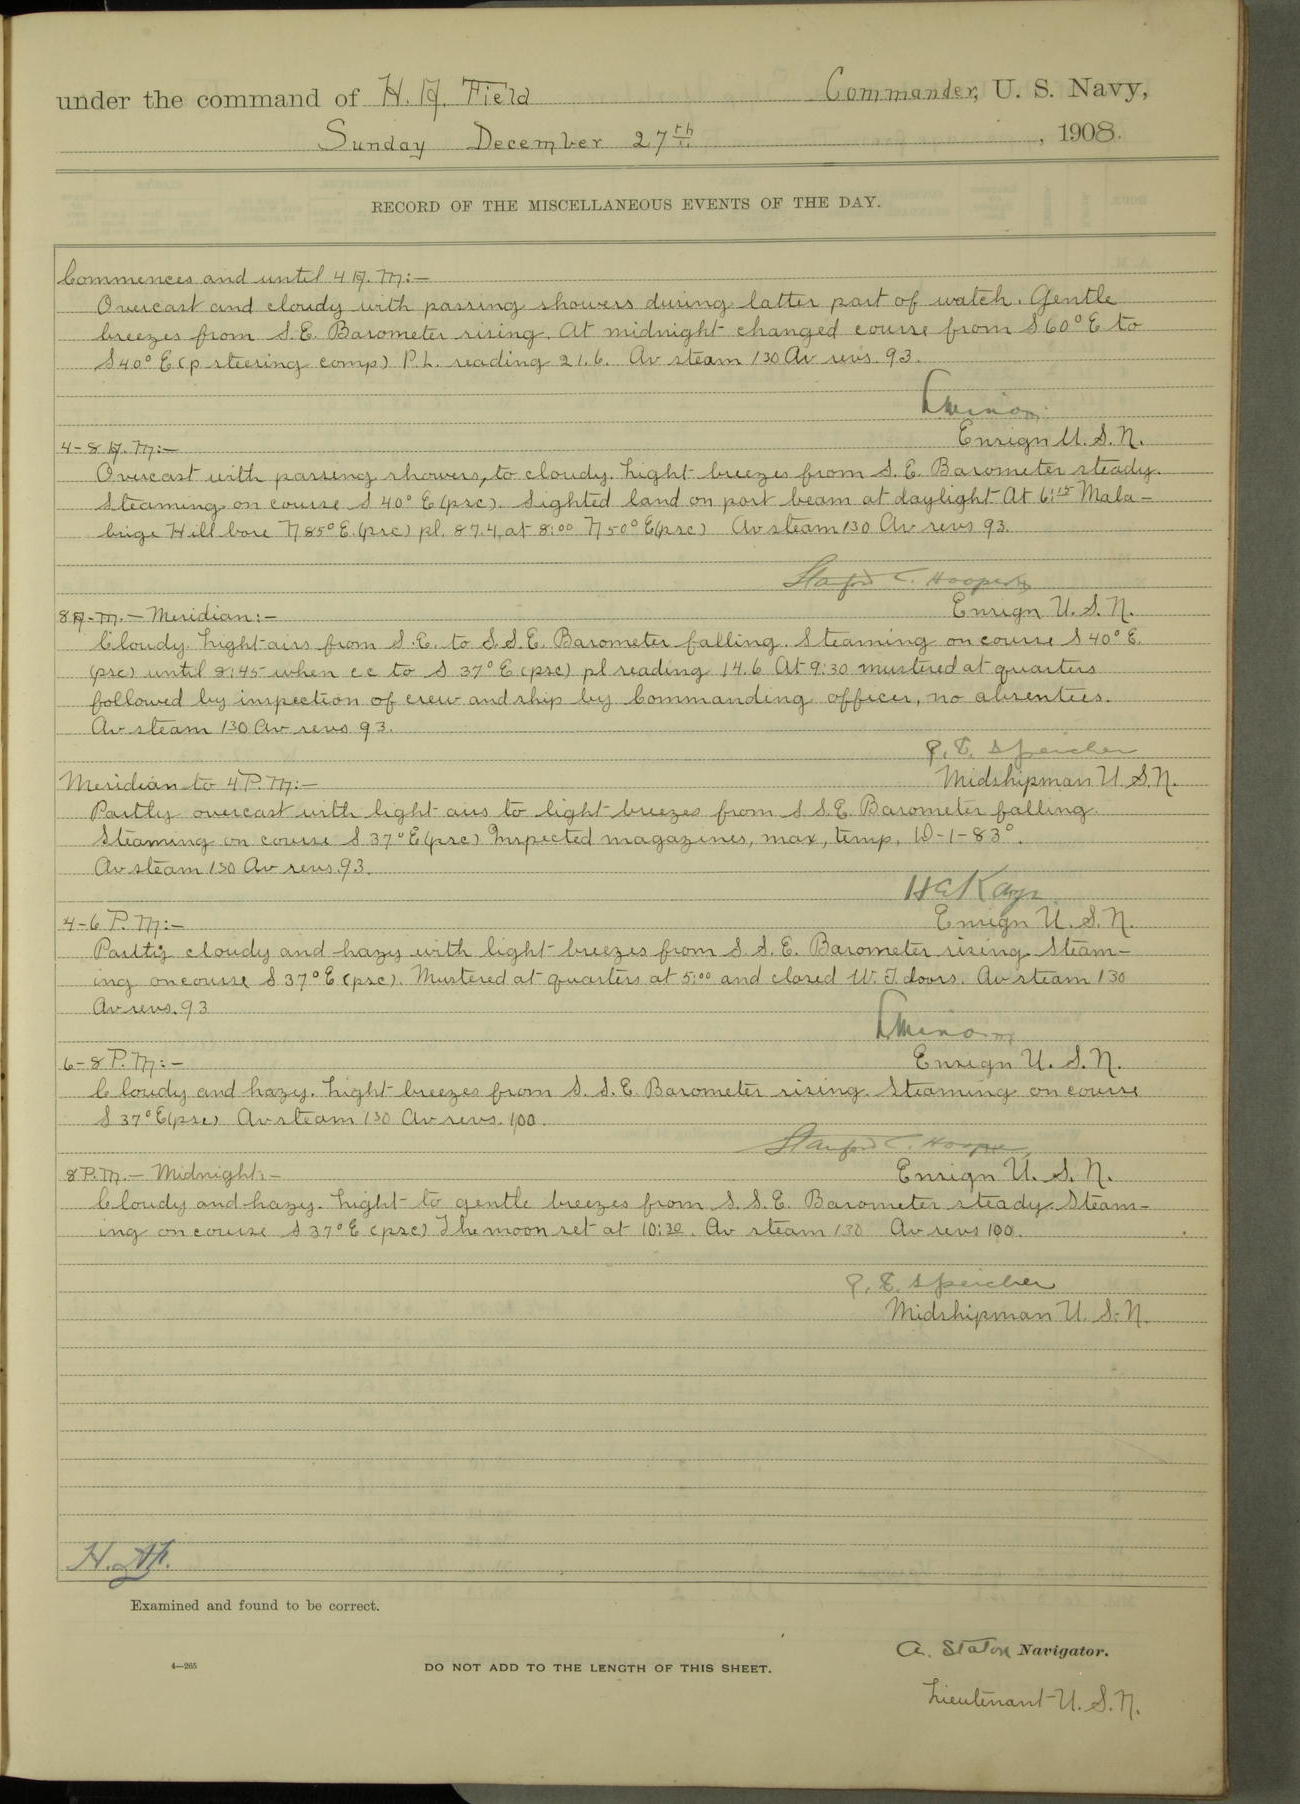 under the command of H. A. Field Commander, U. S. Navy,
Sunday December 27th, 1908.
RECORD OF THE MISCELLANEOUS EVENTS OF THE DAY.
Commences and until 4 A. M:—
Overcast and cloudy with passing showers during latter part of watch. Gentle
breezes from S.E. Barometer rising. At midnight changed course from S 60° E to
S 40° E (p steering comp) P.L. reading 21.6. Av steam 130 Av revs. 93.
Ensign U.S.N.
4-8 A. M:—
Overcast with passing showers, to cloudy. Light breezes from S. E. Barometer steady.
Steaming on course S 40° E (psc). Sighted land on port beam at daylight At 6:15 Mala-
brige Hill bore N 85° E. (psc) pl. 87.4, at 8:00 N 50° E (psc) Av steam 130 Av revs 93.
Stanford C. Hooper
Ensign U.S.N.
8 A. M. — Meridian:—
Cloudy. Light airs from S.E. to S.S.E. Barometer falling. Steaming on course S 40° E.
(psc) until 8:45 when c c to S 37° E (psc) pl reading 14.6 At 9:30 mustered at quarters
followed by inspection of crew and ship by Commanding officer, no absentees.
Av steam 130 Av revs 93.
P. E. Speicher
Midshipman U.S.N.
Meridian to 4 P. M:—
Partly overcast with light airs to light breezes from S S.E. Barometer falling.
Steaming on course S 37° E (psc) Inspected magazines, max, temp, D-1-83°.
Av steam 130 Av revs. 93.
H E Kays
Ensign U.S.N.
4-6 P. M:—
Partly cloudy and hazy with light breezes from S S. E. Barometer rising. Steam-
ing on course S 37° E (psc). Mustered at quarters at 5:00 and closed W. T. doors. Av steam 130
Av revs. 93
Ensign U. S. N.
6-8 P. M:—
Cloudy and hazy. Light breezes from S. S. E. Barometer rising. Steaming on course
S 37° E (psc) Av steam 130 Av revs. 100.
Stanford C. Hooper
Ensign U. S. N.
8 P. M. — Midnight:—
Cloudy and hazy. Light to gentle breezes from S. S. E. Barometer steady. Steam-
ing on course S 37° E (psc) The moon set at 10:30. Av steam 130 Av revs 100.
P. E. Speicher
Midshipman U. S. N.
Examined and found to be correct.
A. Staton Navigator.
4—265
DO NOT ADD TO THE LENGTH OF THIS SHEET.
Lieutenant U. S. N.